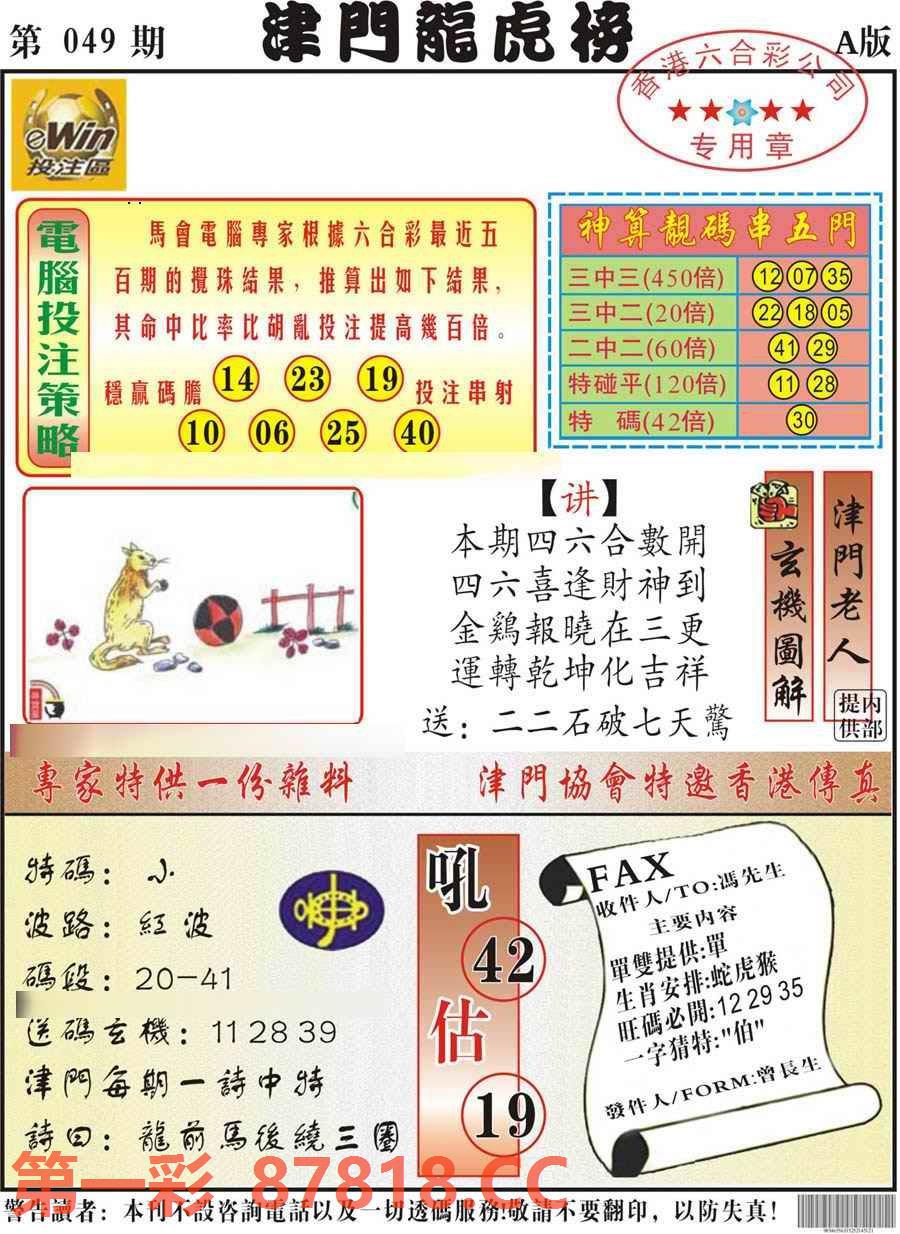 第 049 期
津門龍虎榜
A版
香港六合彩公司
专用章
eWin
投注區
電腦投注策略
馬會電腦專家根據六合彩最近五
百期的攪珠結果，推算出如下結果，
其命中比率比胡亂投注提高幾百倍。
穩贏碼膽 14 23 19 投注串射
10 06 25 40
神算靚碼串五門
三中三(450倍) 12 07 35
三中二(20倍) 22 18 05
二中二(60倍) 41 29
特碰平(120倍) 11 28
特 碼(42倍) 30
【讲】
本期四六合數開
四六喜逢財神到
金鷄報曉在三更
運轉乾坤化吉祥
送：二二石破七天驚
玄機圖解
津門老人
提供
内部
專家特供一份雜料
津門協會特邀香港傳真
特碼：小
波路：紅波
碼段：20-41
送碼玄機：11 28 39
津門每期一詩中特
詩曰：龍前馬後繞三圈
吼
42
估
19
FAX
收件人/TO:馮先生
主要内容
單雙提供:單
生肖安排:蛇虎猴
旺碼必開:12 29 35
一字猜特:"伯"
發件人/FORM:曾長生
第一彩 87818.CC
警告讀者：本刊不設咨詢電話以及一切透碼服務!敬請不要翻印，以防失真!